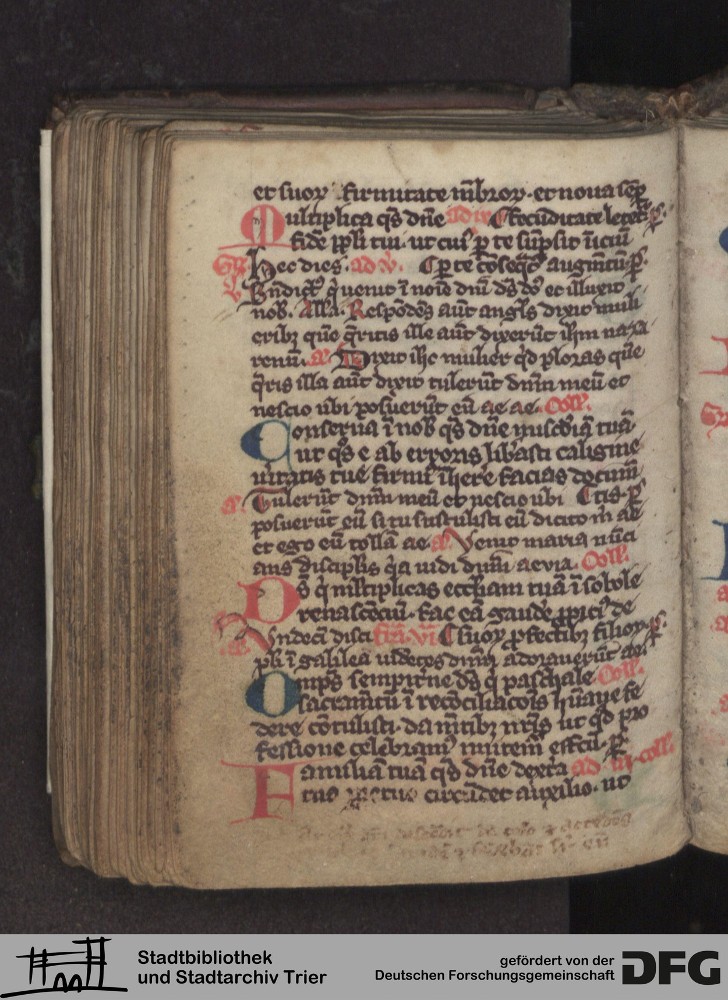 et suoꝝ firmitate mẽbroꝝ · et noua sẽꝑ
Multiplica q̃s dñe ad vi C fecũditate letet̃ · ꝑ ·
fidẽ ppli tui · ut cuiꝰ ꝑ te sũpsit iniciũ
Hec dies · ad v̾ · C ꝑ te cõseqͣt augmẽtũ · ꝑ ·
Bñdictꝰ q̇ uenit ĩ noĩe dñi ds̃
nob̾ · Alla · Respõdẽs aũt angls̃ dixit muli
eribꝫ quẽ q̃ritis ille aũt dixerũt ihm naza
renũ · a Dixit ihc mulier qͥd ploras quẽ
q̃ris illa aũt dixit tulerũt dñm meũ et
nescio ubi posuerũt eũ ae ae · Coll̾ ·
Conserua ĩ nob̾ q̃s dñe miscdĩa tuã
ut qͦs ab erroris libasti caligine
uitatis tue firmiꝰ facias docum̃
a Tulerũt dñm meũ et nescio ubi
posuerũt eũ si tu sustulisti eũ dicito m̃ ae
et ego eũ tollã ae a Venit maria nũci
ans disciplis q̃a uidi dñm aevia · Coll̾ ·
Ds̃ q̇ ml̃tiplicas ecc̃iam tuã ĩ sobole
renascẽciũ · fac eã gaudẽ ꝓpiciꝰ de
Vndeci disci fr̃ia vi C suoꝝ ꝓfectibꝫ filioꝝ · ꝑ ·
pl̃i ĩ galilea uidẽtes dñm adorauerũt ae
Omp̃s sempit̃ne ds̃ q̇ paschale Coll̾ ·
sacramẽtũ ĩ recõciliacõis hũane fe
dere cõtulisti · da mẽtibꝫ nr̃is ut qͦd pro
fessione celebramꝰ imitem̃ effc̃u · ꝑ
Familiã tuã q̃s dñe dextᷓa ad coll̾ ·
tue circũdet auxilio · ut
Stadtbibliothek
und Stadtarchiv Trier
gefördert von der
Deutschen Forschungsgemeinschaft
DFG